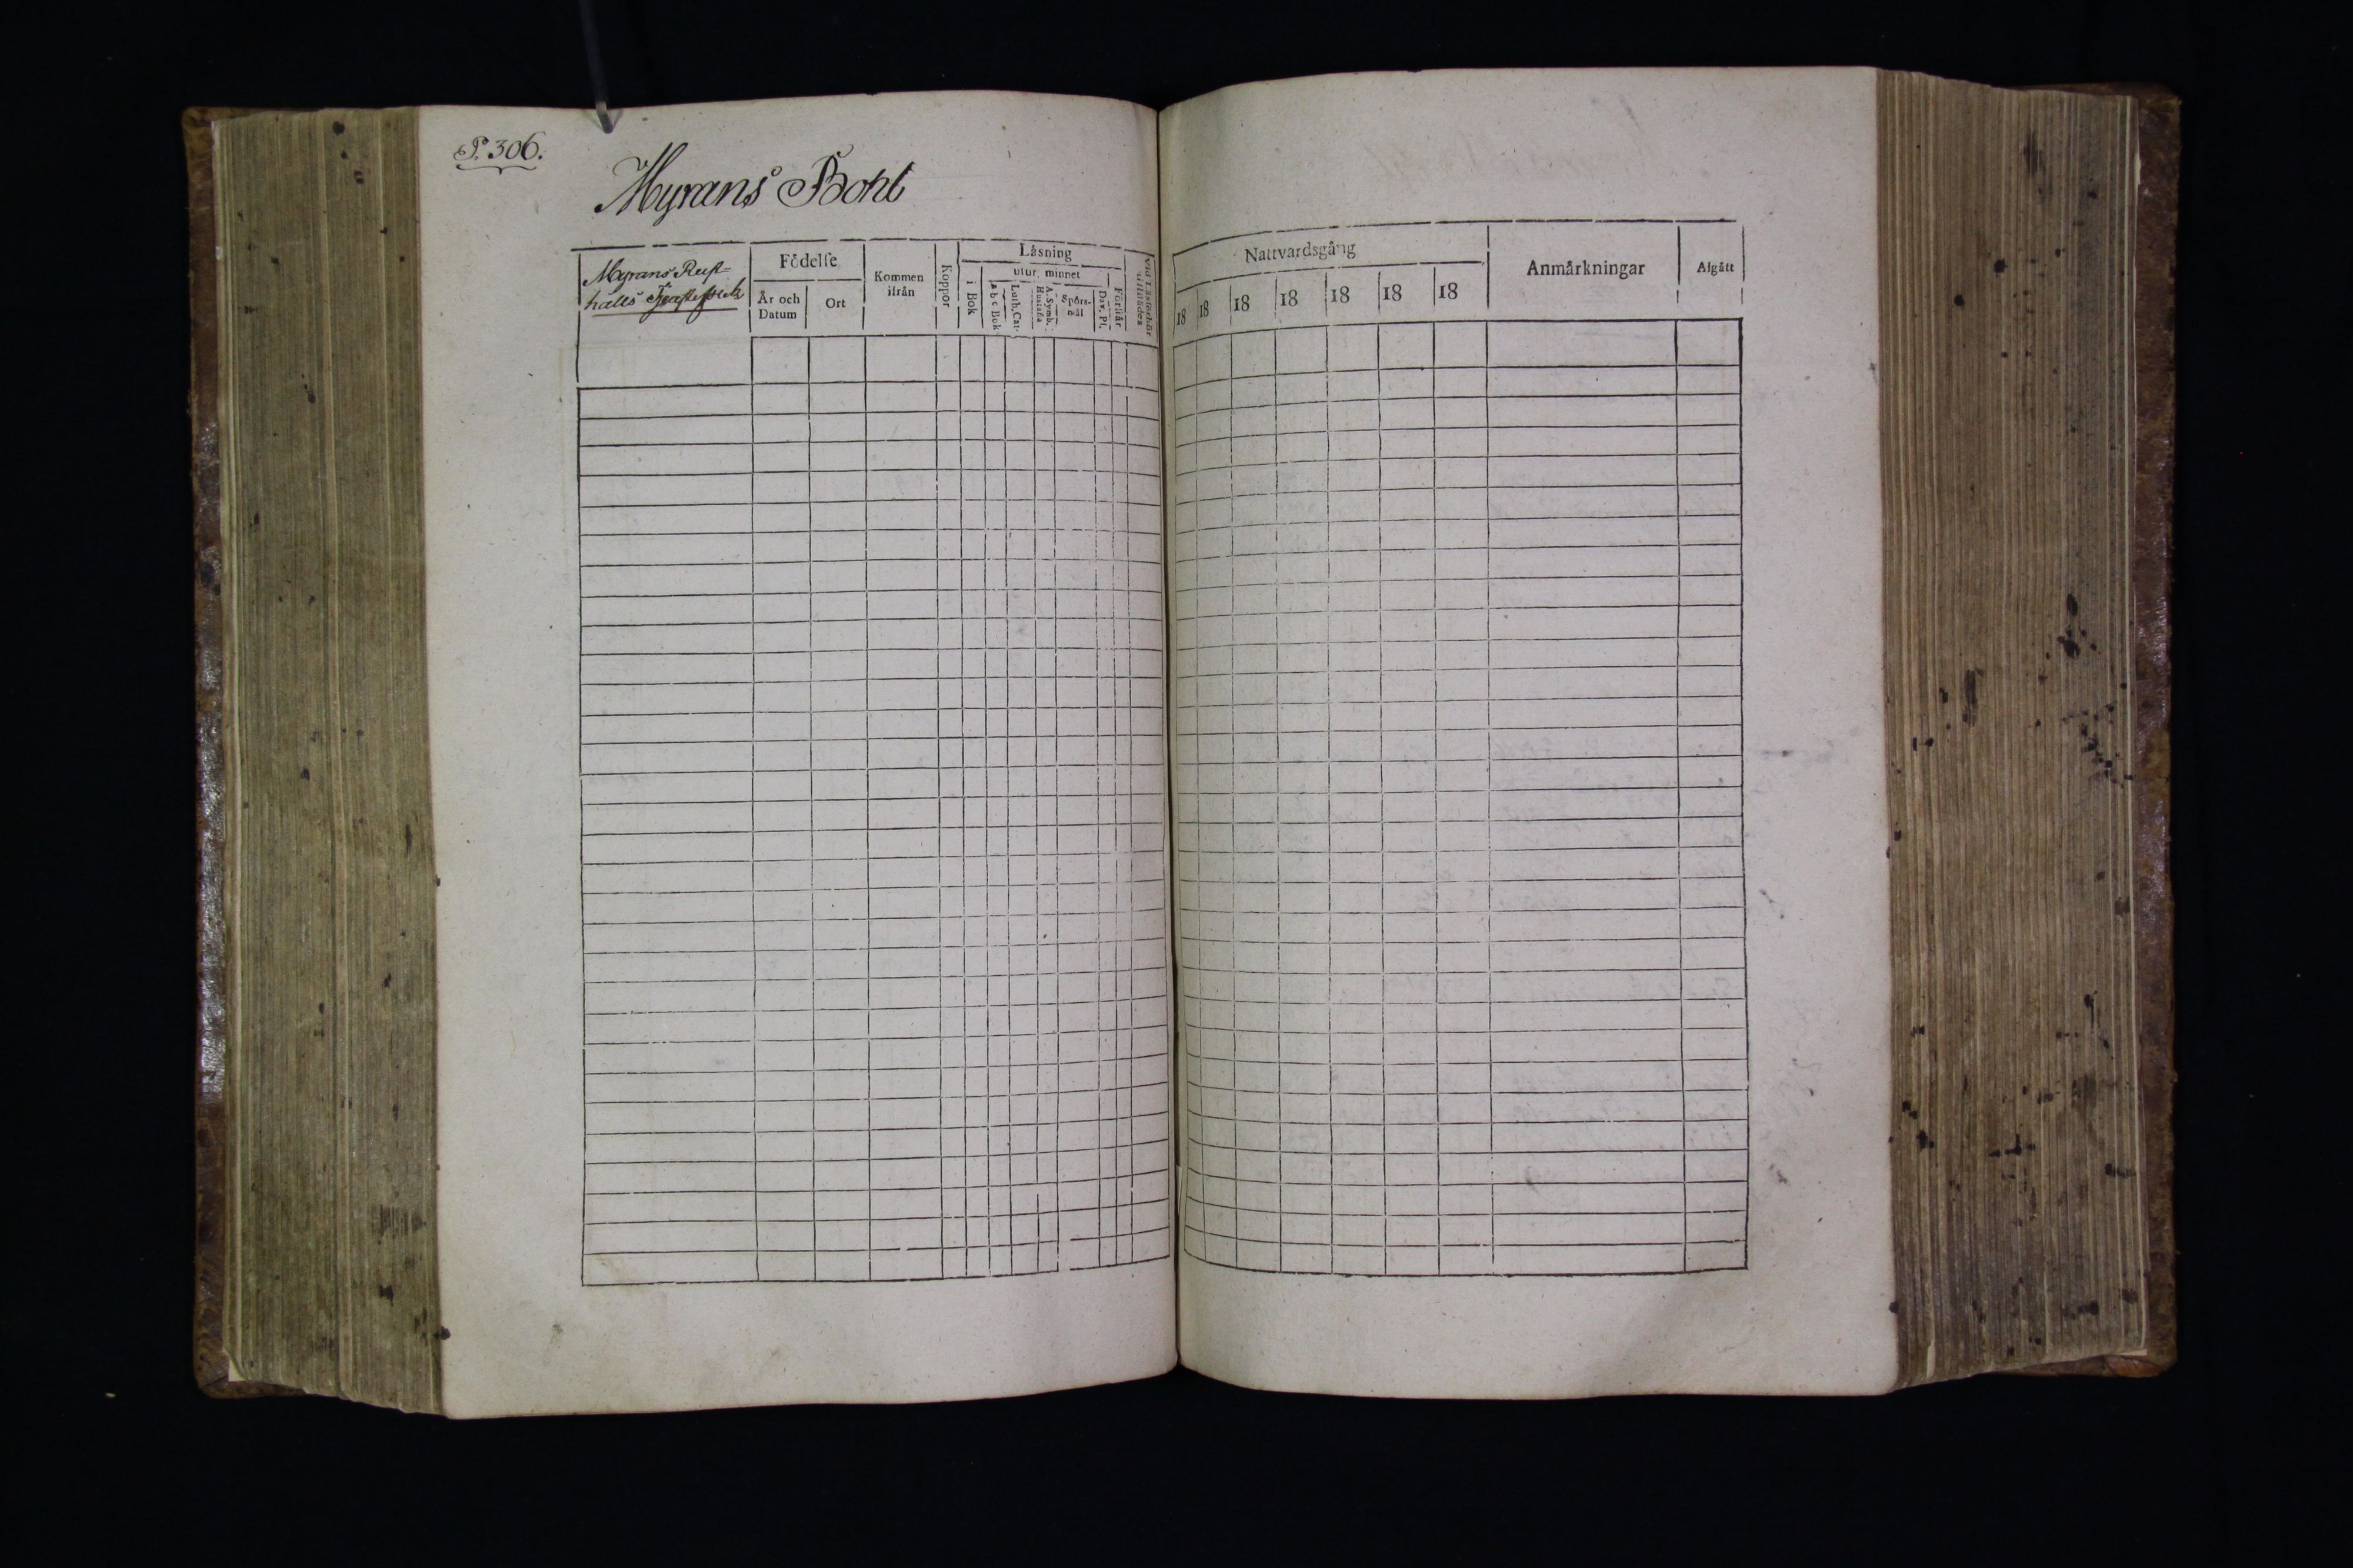 P. 306.
Myrans Bohl
Myrans Rust-
hålls Tjenstefolck
Födelse
År och
Datum
Ort
Kommen
ifrån
Koppor
Läsning
i Bok
utur minnet
a b c Bok
Luth. Cat.
A. Symb.
Hustafla
Spörs-
mål
Dav. Ps.
Förstår
Vid Läsförhör
tillstädes
Nattvardsgång
18 18 18 18 18 18 18
Anmärkningar
Afgått